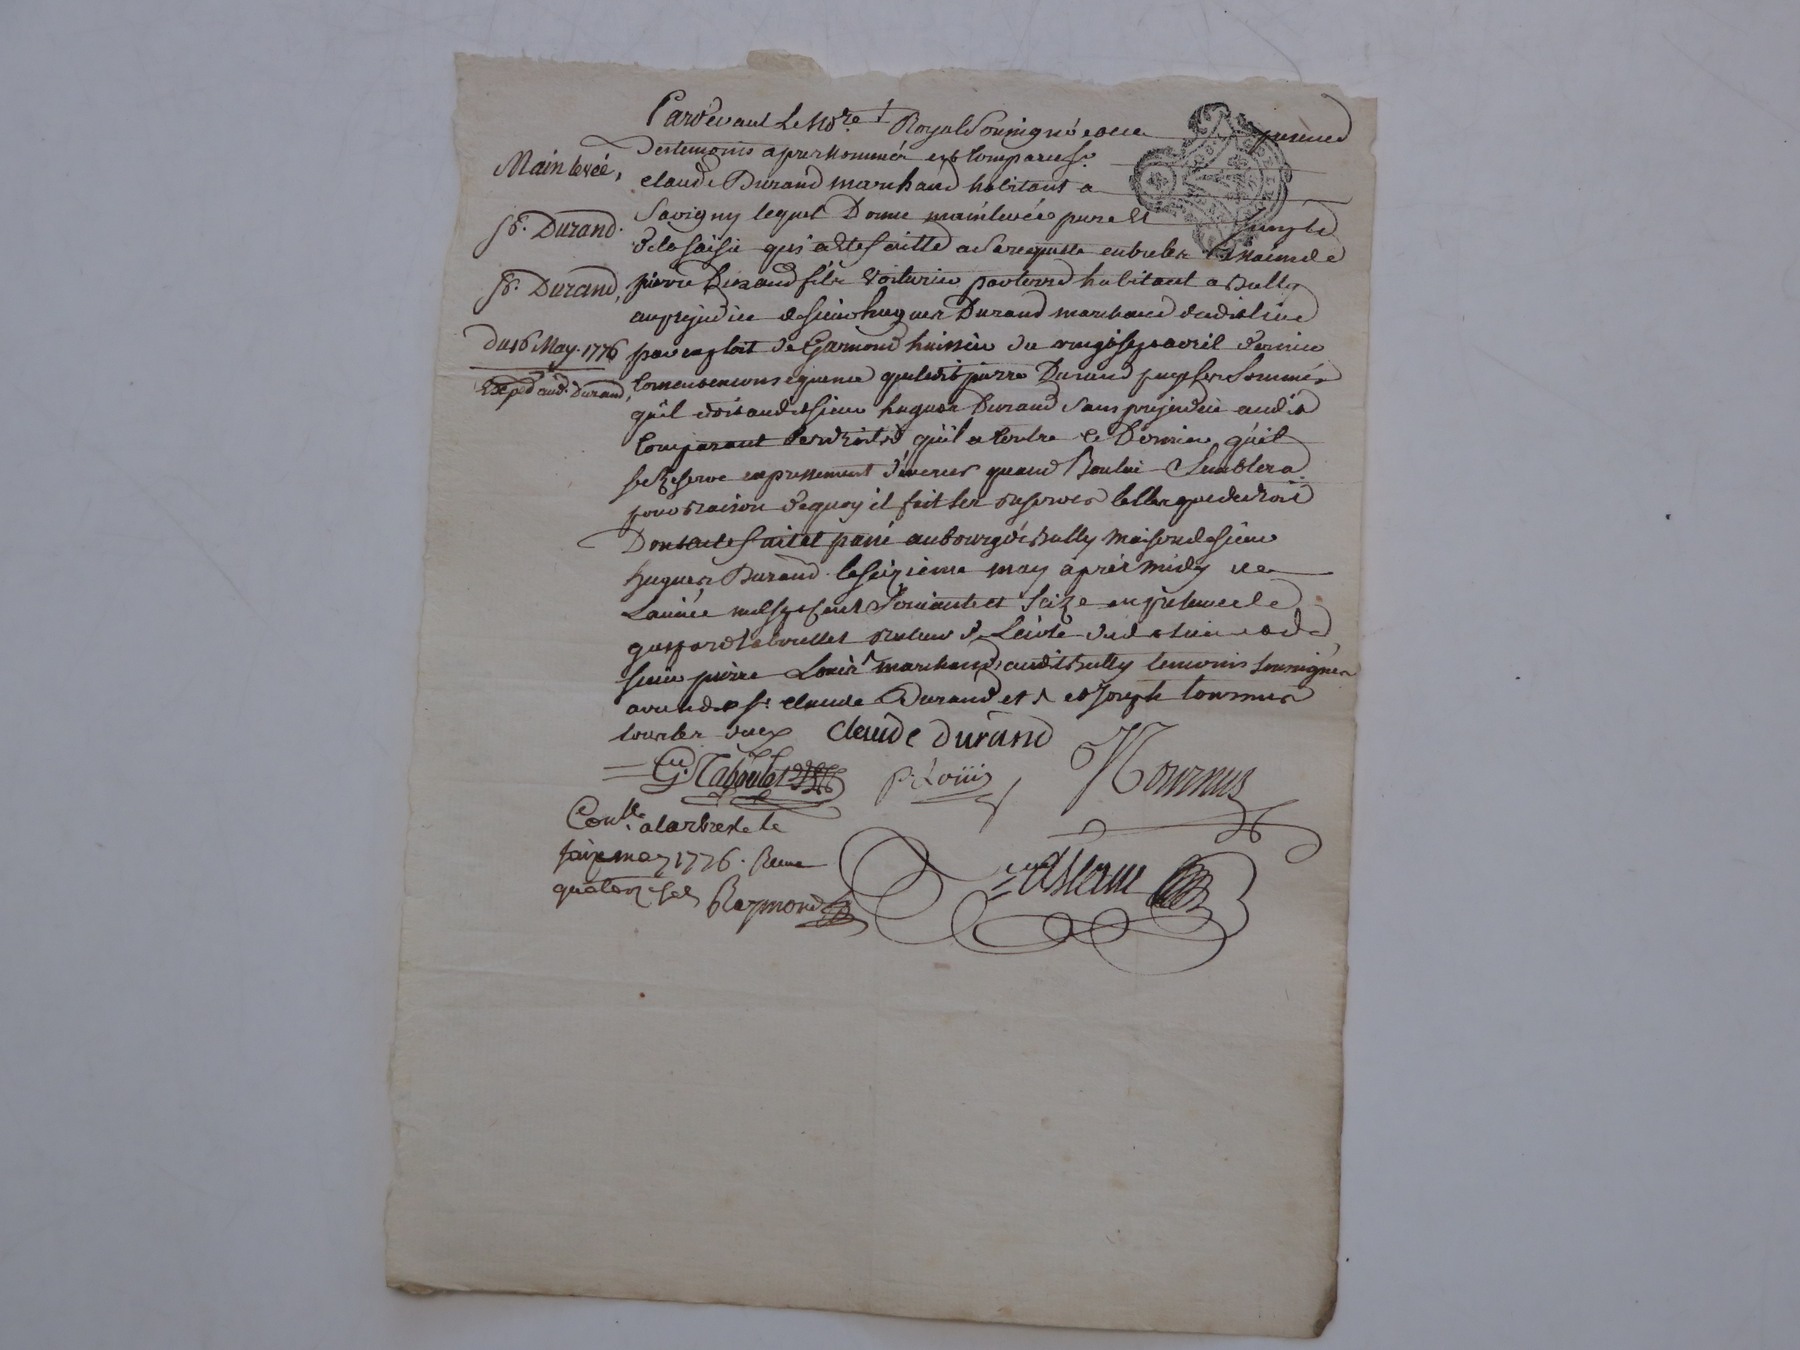 Pardevant Le No.re Royal Soussigné et en presence
Des temoins apres nommés est comparu S.r
claude Durand marchand habitant a
Savigny lequel Donne mainlevée pure et simple
de la saisie qui a eté faitte a sa requette entre les mains de
pierre Durand fils voiturier par terre habitant a Bully
au prejudice de sieur hugues Durand marchand dudit lieu
par exploit de Garmond huissier du vingt sept avril dernier
consent en consequence que ledit pierre Durand paye les sommes
qu'il doit audit sieur hugues Durand sans prejudice audit
comparant des droits qu'il a contre ce Dernier qu'il
se Reserve expressement d'exercer quand Bon lui Semblera
pour raison de quoy il fait les reserves telles que de droit
Dont acte fait et passé au bourg de Bully maison de sieur
hugues Durand le seizieme may après midy
L'année mil sept cent soixante et seize en presence de
gaspard taboullet recteur de L'ecole dudit lieu et de
sieur pierre Louis marchand audit Bully temoins soussignés
avec ledit S.r claude Durand et joseph tournus
Mainlevée,
S.r Durand.
S.r Durand,
du 16 May 1776
Exped. aud. Durand,
claude durand
G. Taboulet
p. Loüis
J Tournus
Con.lle a larbresle le
seize may 1776. Recu
quatorze sols Raymond